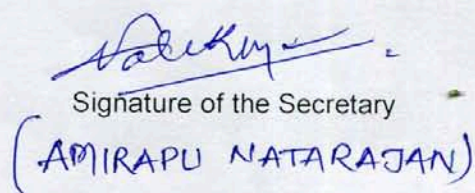 Signature of the Secretary
(AMIRAPU NATARAJAN)